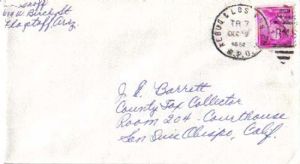 W. Birch St
Flagstaff, Ariz
ALBUQ & LOS
TR 7
DEC
R.P.O.
J. R. Barrett
County Tax Collector
Room 204 - Courthouse
San Luis Obispo, Calif.